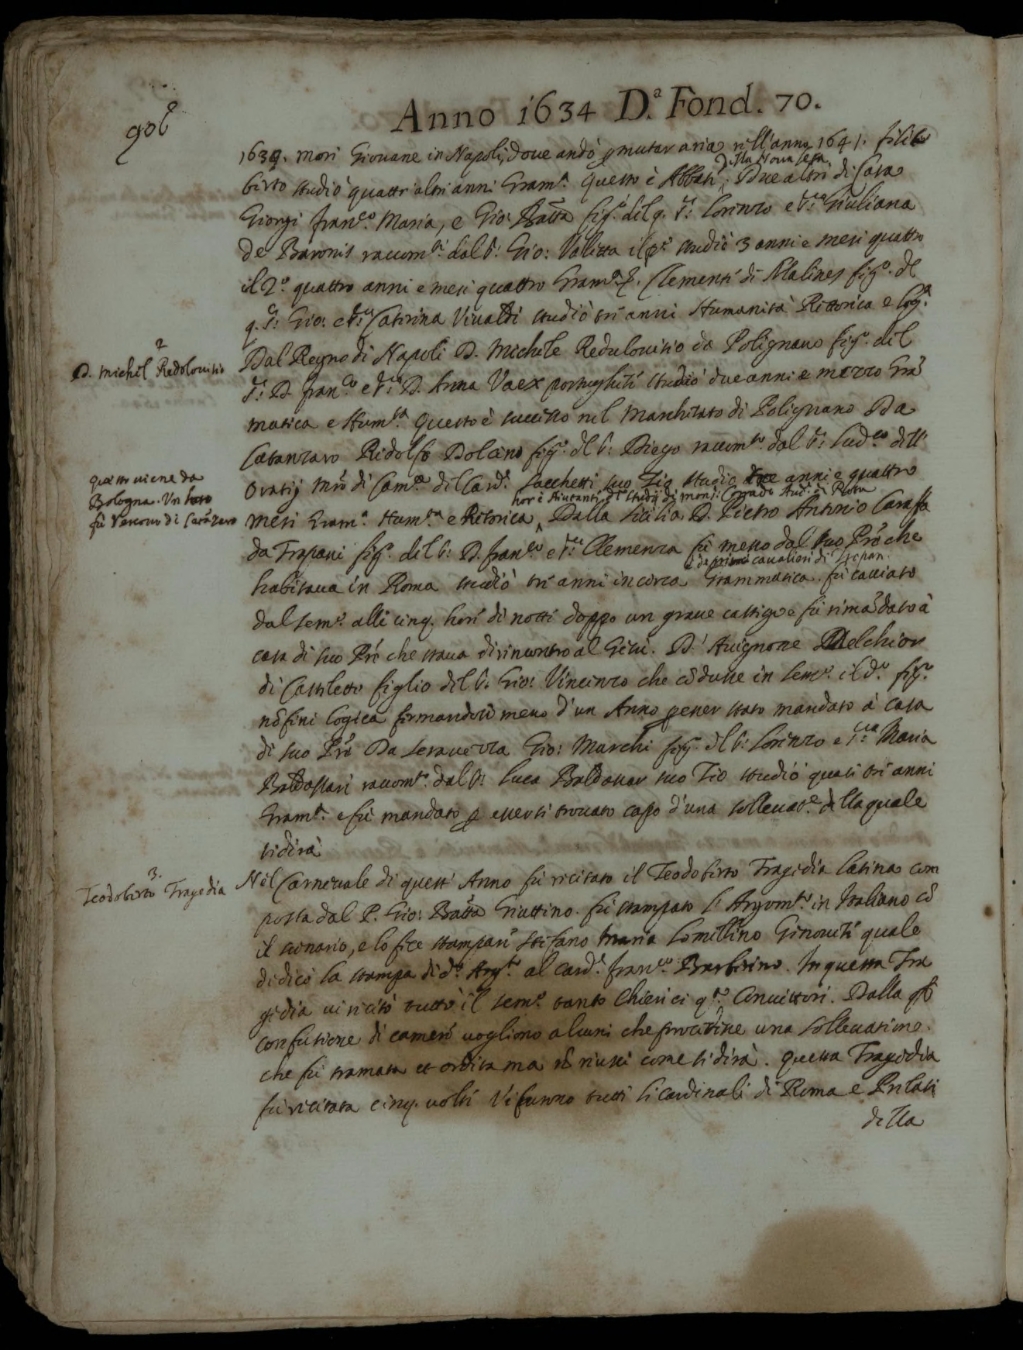 906
Anno 1634 D.ª Fond. 70.
1639. morì Giovane in Napoli, dove andò p mutar aria nell'anno 1641. Felib
berto studiò quattr'altri anni Gram.ª Questo è Abbate della Nova setta. Due altri di Casa
Giorgi Fran.co Maria, e Gio: Batta fig.i del q. S.r Lorenzo e S.ra Giuliana
de Baronis racom.ti dal S.r Gio: il p.º studiò 3 anni e mesi quattro
il 2.º quattro anni e mesi quattro Gram.ª Clemente di Malines fig.º del
q. S.r Gio: e S.ra Caterina Vivaldi studiò tre anni Humanità Rettorica e Log.ª
2
D. Michel Radolovisio
Dal Regno di Napoli D. Michele Redulovisio da Polignano fig.º del
S.r D. Fran.co e S.ra D. Anna Vaex portughese studiò due anni e mezzo Gra
matica e Hum.tà Questo è successo nel Marchesato di Polignano Da
Catanzaro Ridolfo Dolcino fig.º del S.r Diego racom.to dal S.r Lud.co dell'
questo viene da
Bologna. Un
fu Vescovo di
Oratij m.ro di Cam.ra del Card.l Sacchetti suo Zio studiò anni e quattro
mesi Gram.ª Hum.tà e Retorica hor è Aiutante di studij di mons. Corrado Aud. di Rota. Dalla Sicilia D. Pietro Antonio Caraffa
da Trapani fig.º del S.r D. Fran.co e S.ra Clemenza fu messo dal suo Prē che
habitava in Roma studiò tre anni in circa Grammatica. fu cacciato
dal Sem.º alli cinq. hore di notte doppo un grave castigo e fu rimādato à
casa di suo Prē che stava dirincontro al Giesù. D'Avignone Melchior
di Castelletto figlio del S.r Gio: Vincenzo che cōdusse in Sem.º il d.º fig.º
nō finì Logica fermandosi meno d'un Anno p esser stato mandato à casa
di suo Prē Da Seravezza Gio: Marchi fig.º del S.r Lorenzo e S.ra Maria
Baldassari racom.to dal S.r Luca Baldassar suo Zio studiò quasi tre anni
Gram.ª e fu mandato p essersi trovato capo d'una sollevat.e della quale
si dirà
3.
Teodoberto Tragedia
Nel Carnevale di quest' Anno fu recitato il Teodoberto Tragedia latina com
posta dal P. Gio: Batta Giattino. fu stampato l'Argom.to in Italiano cō
il scenario, e lo fece stampare Stefano maria Lomellino Genovese quale
dedicò la stampa di d.º Arg.to al Card.l Fran.co Barberino. In questa Tra
gedia vi recitò tutto il Sem.º tanto Chierici q.to Convittori. Dalla
confusione di camere vogliono alcuni che procedesse una sollevatione
che fu tramata et ordita ma nō riuscì come si dirà. questa Tragedia
fu recitata cinq. volte Vi furono tutti li Cardinali di Roma e Prelati
della